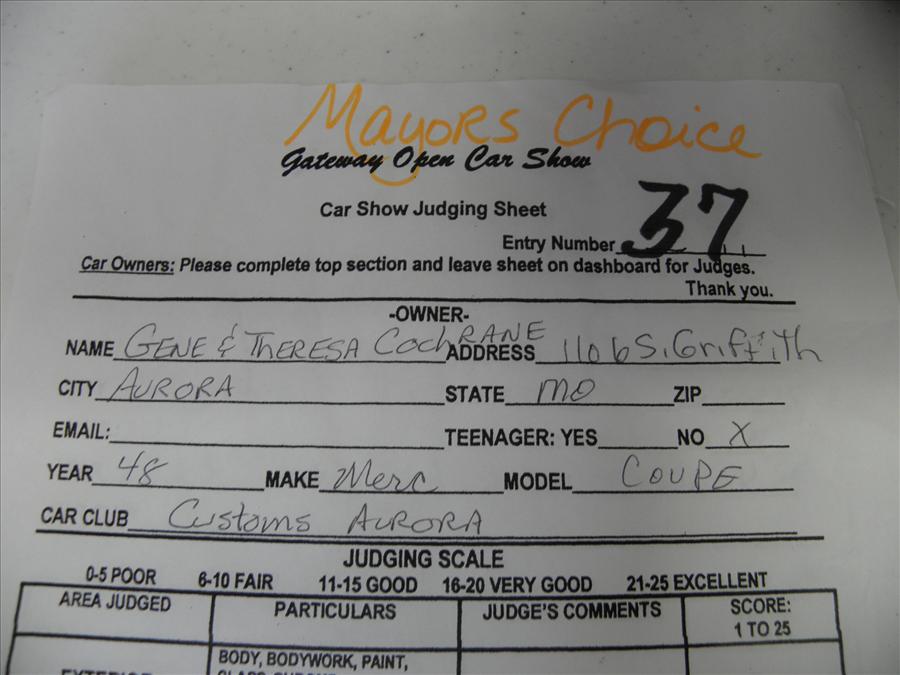 Mayors Choice
Gateway Open Car Show
Car Show Judging Sheet
Entry Number 37
Car Owners: Please complete top section and leave sheet on dashboard for Judges.
Thank you.
-OWNER-
NAME GENE & THERESA COCHRANE ADDRESS 1106 S. Griffith
CITY AURORA STATE MO ZIP
EMAIL: TEENAGER: YES NO X
YEAR 48 MAKE Merc MODEL COUPE
CAR CLUB Customs AURORA
JUDGING SCALE
0-5 POOR 6-10 FAIR 11-15 GOOD 16-20 VERY GOOD 21-25 EXCELLENT
AREA JUDGED PARTICULARS JUDGE'S COMMENTS SCORE:
1 TO 25
BODY, BODYWORK, PAINT,